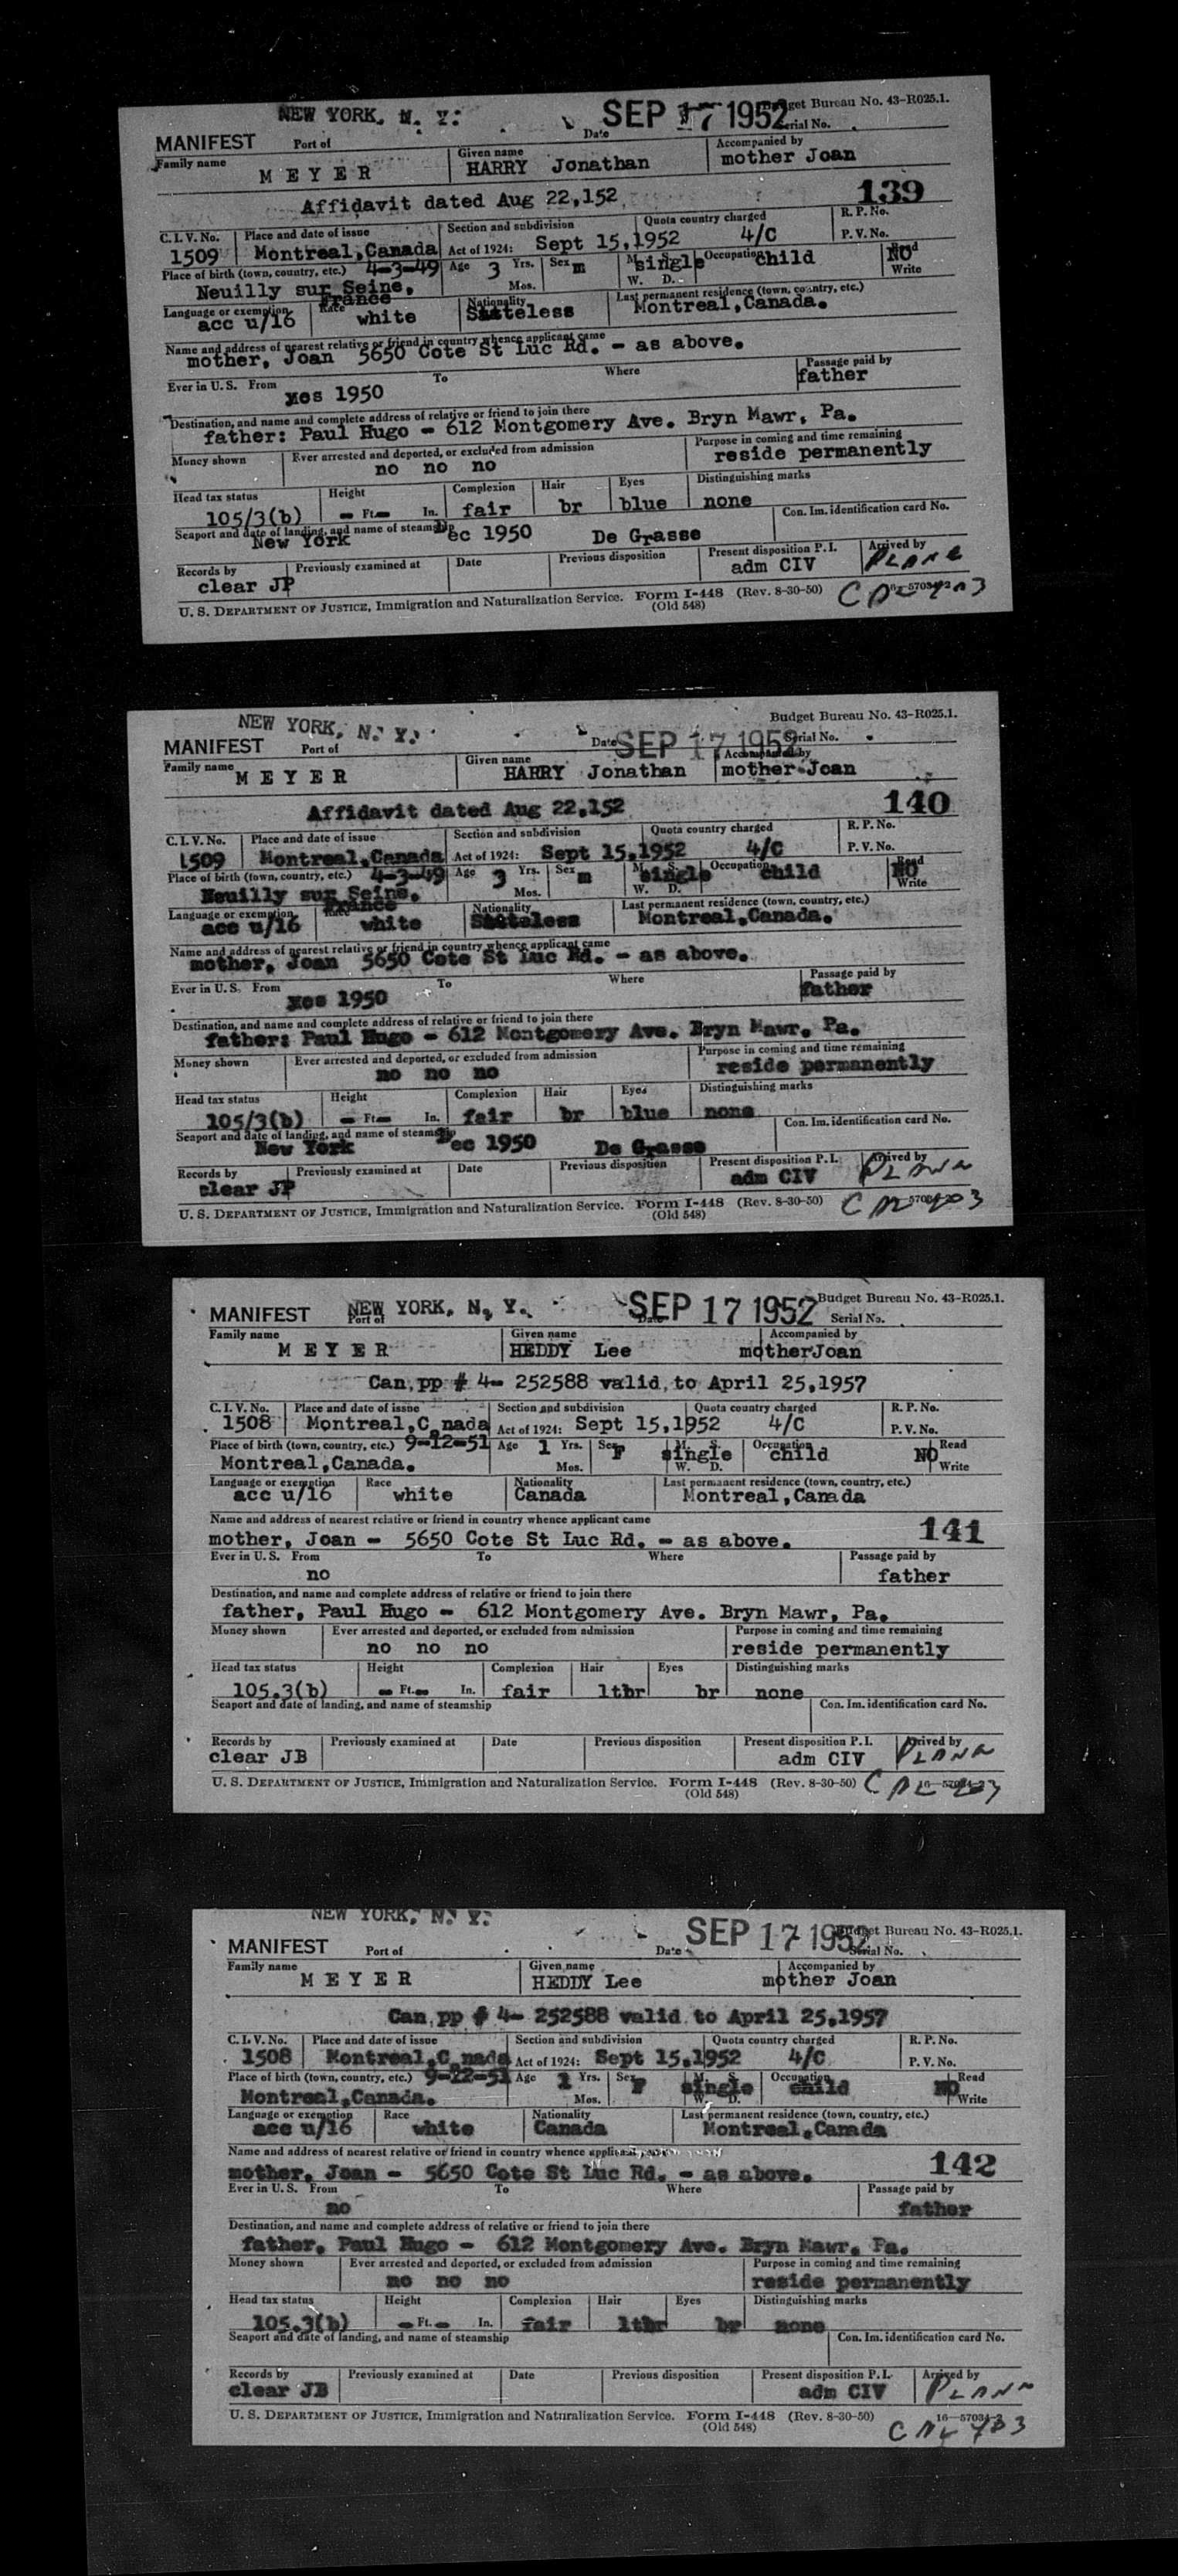 NEW YORK, N. Y. SEP 17 1952 Budget Bureau No. 43-R025.1.
MANIFEST Port of Date Serial No.
Family name Given name Accompanied by
MEYER HARRY Jonathan mother Joan
Affidavit dated Aug 22,152 139
C. I. V. No. Place and date of issue Section and subdivision Quota country charged R. P. No.
1509 Montreal,Canada Act of 1924: Sept 15,1952 4/C P. V. No.
Place of birth (town, country, etc.) 4-3-49 Age 3 Yrs. Sex m M. S. single Occupation child NO Read
Neuilly sur Seine, Mos. W. D. Write
France
Language or exemption Race Nationality Last permanent residence (town, country, etc.)
acc u/16 white Stateless Montreal,Canada.
Name and address of nearest relative or friend in country whence applicant came
mother, Joan 5650 Cote St Luc Rd. - as above.
Ever in U. S. From To Where Passage paid by
yes 1950 father
Destination, and name and complete address of relative or friend to join there
father: Paul Hugo - 612 Montgomery Ave. Bryn Mawr, Pa.
Money shown Ever arrested and deported, or excluded from admission Purpose in coming and time remaining
no no no reside permanently
Head tax status Height Complexion Hair Eyes Distinguishing marks
105/3(b) - Ft. - In. fair br blue none Con. Im. identification card No.
Seaport and date of landing, and name of steamship
New York Dec 1950 De Grasse
Records by Previously examined at Date Previous disposition Present disposition P. I. Arrived by
clear JP adm CIV PLANE
U. S. DEPARTMENT OF JUSTICE, Immigration and Naturalization Service. Form I-448 (Rev. 8-30-50)
(Old 548)
NEW YORK, N. Y. Budget Bureau No. 43-R025.1.
MANIFEST Port of Date SEP 17 1952 Serial No.
Family name Given name Accompanied by
MEYER HARRY Jonathan mother Joan
Affidavit dated Aug 22,152 140
C. I. V. No. Place and date of issue Section and subdivision Quota country charged R. P. No.
1509 Montreal,Canada Act of 1924: Sept 15,1952 4/C P. V. No.
Place of birth (town, country, etc.) 4-3-49 Age 3 Yrs. Sex m M. S. single Occupation child NO Read
Neuilly sur Seine, Mos. W. D. Write
France
Language or exemption Race Nationality Last permanent residence (town, country, etc.)
acc u/16 white Stateless Montreal,Canada.
Name and address of nearest relative or friend in country whence applicant came
mother, Joan 5650 Cote St Luc Rd. - as above.
Ever in U. S. From To Where Passage paid by
yes 1950 father
Destination, and name and complete address of relative or friend to join there
father: Paul Hugo - 612 Montgomery Ave. Bryn Mawr, Pa.
Money shown Ever arrested and deported, or excluded from admission Purpose in coming and time remaining
no no no reside permanently
Head tax status Height Complexion Hair Eyes Distinguishing marks
105/3(b) - Ft. - In. fair br blue none Con. Im. identification card No.
Seaport and date of landing, and name of steamship
New York Dec 1950 De Grasse
Records by Previously examined at Date Previous disposition Present disposition P. I. Arrived by
clear JP adm CIV PLANE
U. S. DEPARTMENT OF JUSTICE, Immigration and Naturalization Service. Form I-448 (Rev. 8-30-50)
(Old 548)
MANIFEST NEW YORK, N. Y. SEP 17 1952 Budget Bureau No. 43-R025.1.
Port of Date Serial No.
Family name Given name Accompanied by
MEYER HEDDY Lee mother Joan
Can pp # 4- 252588 valid to April 25,1957
C. I. V. No. Place and date of issue Section and subdivision Quota country charged R. P. No.
1508 Montreal,C nada Act of 1924: Sept 15,1952 4/C P. V. No.
Place of birth (town, country, etc.) 9-12-51 Age 1 Yrs. Sex F M. S. single Occupation child NO Read
Montreal,Canada. Mos. W. D. Write
Language or exemption Race Nationality Last permanent residence (town, country, etc.)
acc u/16 white Canada Montreal,Canada
Name and address of nearest relative or friend in country whence applicant came 141
mother, Joan - 5650 Cote St Luc Rd. - as above.
Ever in U. S. From To Where Passage paid by
no father
Destination, and name and complete address of relative or friend to join there
father, Paul Hugo - 612 Montgomery Ave. Bryn Mawr, Pa.
Money shown Ever arrested and deported, or excluded from admission Purpose in coming and time remaining
no no no reside permanently
Head tax status Height Complexion Hair Eyes Distinguishing marks
105.3(b) - Ft. - In. fair ltbr br none
Seaport and date of landing, and name of steamship Con. Im. identification card No.
Records by Previously examined at Date Previous disposition Present disposition P. I. Arrived by
clear JB adm CIV PLANE
U. S. DEPARTMENT OF JUSTICE, Immigration and Naturalization Service. Form I-448 (Rev. 8-30-50)
(Old 548)
NEW YORK, N. Y. SEP 17 1952 Budget Bureau No. 43-R025.1.
MANIFEST Port of Date Serial No.
Family name Given name Accompanied by
MEYER HEDDY Lee mother Joan
Can pp # 4- 252588 valid to April 25,1957
C. I. V. No. Place and date of issue Section and subdivision Quota country charged R. P. No.
1508 Montreal,C nada Act of 1924: Sept 15,1952 4/C P. V. No.
Place of birth (town, country, etc.) Age 1 Yrs. Sex F M. S. single Occupation child NO Read
Montreal,Canada. Mos. W. D. Write
Language or exemption Race Nationality Last permanent residence (town, country, etc.)
acc u/16 white Canada Montreal,Canada
Name and address of nearest relative or friend in country whence 142
mother, Joan - 5650 Cote St Luc Rd. - as above.
Ever in U. S. From To Where Passage paid by
no father
Destination, and name and complete address of relative or friend to join there
father, Paul Hugo - 612 Montgomery Ave. Bryn Mawr, Pa.
Money shown Ever arrested and deported, or excluded from admission Purpose in coming and time remaining
no no no reside permanently
Head tax status Height Complexion Hair Eyes Distinguishing marks
105.3(b) - Ft. - In. fair ltbr br none
Seaport and date of landing, and name of steamship Con. Im. identification card No.
Records by Previously examined at Date Previous disposition Present disposition P. I. Arrived by
clear JB adm CIV PLANE
U. S. DEPARTMENT OF JUSTICE, Immigration and Naturalization Service. Form I-448 (Rev. 8-30-50)
(Old 548)